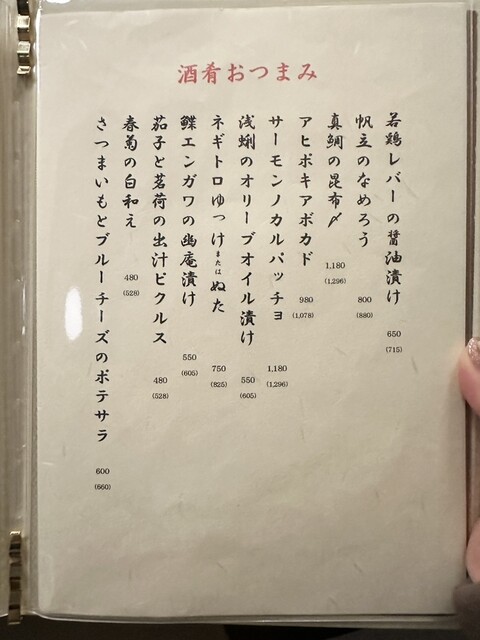 酒肴おつまみ
若鶏レバーの醤油漬け 650 (715)
帆立のなめろう 800 (880)
真鯛の昆布〆 1,180 (1,296)
アヒポキアボカド 980 (1,078)
サーモンノカルパッチョ 1,180 (1,296)
浅蜊のオリーブオイル漬け 550 (605)
ネギトロゆっけまたはぬた 750 (825)
鰈エンガワの幽庵漬け 550 (605)
茄子と茗荷の出汁ピクルス 480 (528)
春菊の白和え 480 (528)
さつまいもとブルーチーズのポテサラ 600 (660)